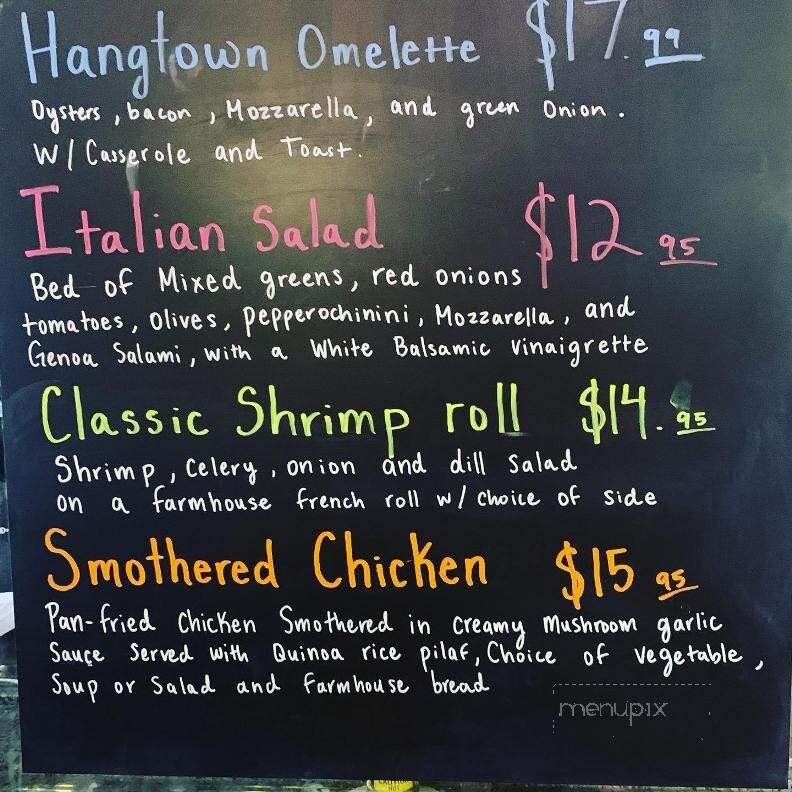 Hangtown Omelette $17.99
Oysters, bacon, Mozzarella, and green onion.
W/ Casserole and Toast.
Italian Salad $12 95
Bed of Mixed greens, red onions
tomatoes, olives, pepperochinini, Mozzarella, and
Genoa Salami, with a White Balsamic Vinaigrette
Classic Shrimp roll $14.95
Shrimp, Celery, onion and dill Salad
on a farmhouse french roll w/ choice of side
Smothered Chicken $15 95
Pan-fried Chicken Smothered in creamy Mushroom garlic
Sauce Served with Quinoa rice pilaf, Choice of vegetable,
Soup or Salad and farmhouse bread
menupix